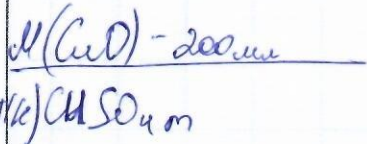 M(CuO) - 200мл
(к) CuSO4 m